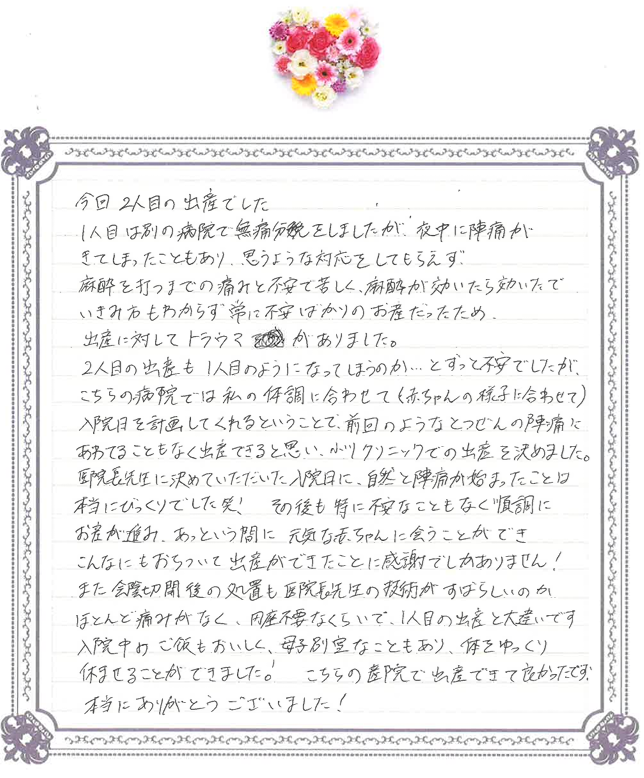 今回 2人目の出産でした
1人目は別の病院で無痛分娩をしましたが、夜中に陣痛が
きてしまったこともあり、思うような対応をしてもらえず
麻酔を打つまでの痛みと不安で苦しく、麻酔が効いたら効いたで
いきみ方もわからず常に不安ばかりのお産だったため、
出産に対してトラウマ がありました。
2人目の出産も1人目のようになってしまうのか…とずっと不安でしたが、
こちらの病院では私の体調に合わせて(赤ちゃんの様子に合わせて)
入院日を計画してくれるということで、前回のようなとつぜんの陣痛に
あわてることもなく出産できると思い、小川クリニックでの出産を決めました。
医院長先生に決めていただいた入院日に、自然と陣痛が始まったことは
本当にびっくりでした笑! その後も特に不安なこともなく順調に
お産が進み、あっという間に 元気な赤ちゃんに会うことができ
こんなにもおちついて出産ができたことに感謝でしかありません!
また会陰切開後の処置も医院長先生の技術がすばらしいのか
ほとんど痛みがなく、円座不要なくらいで、1人目の出産と大違いです
入院中のご飯もおいしく、母子別室なこともあり、体をゆっくり
休ませることができました。! こちらの産院で出産できて良かったです。
本当にありがとうございました!